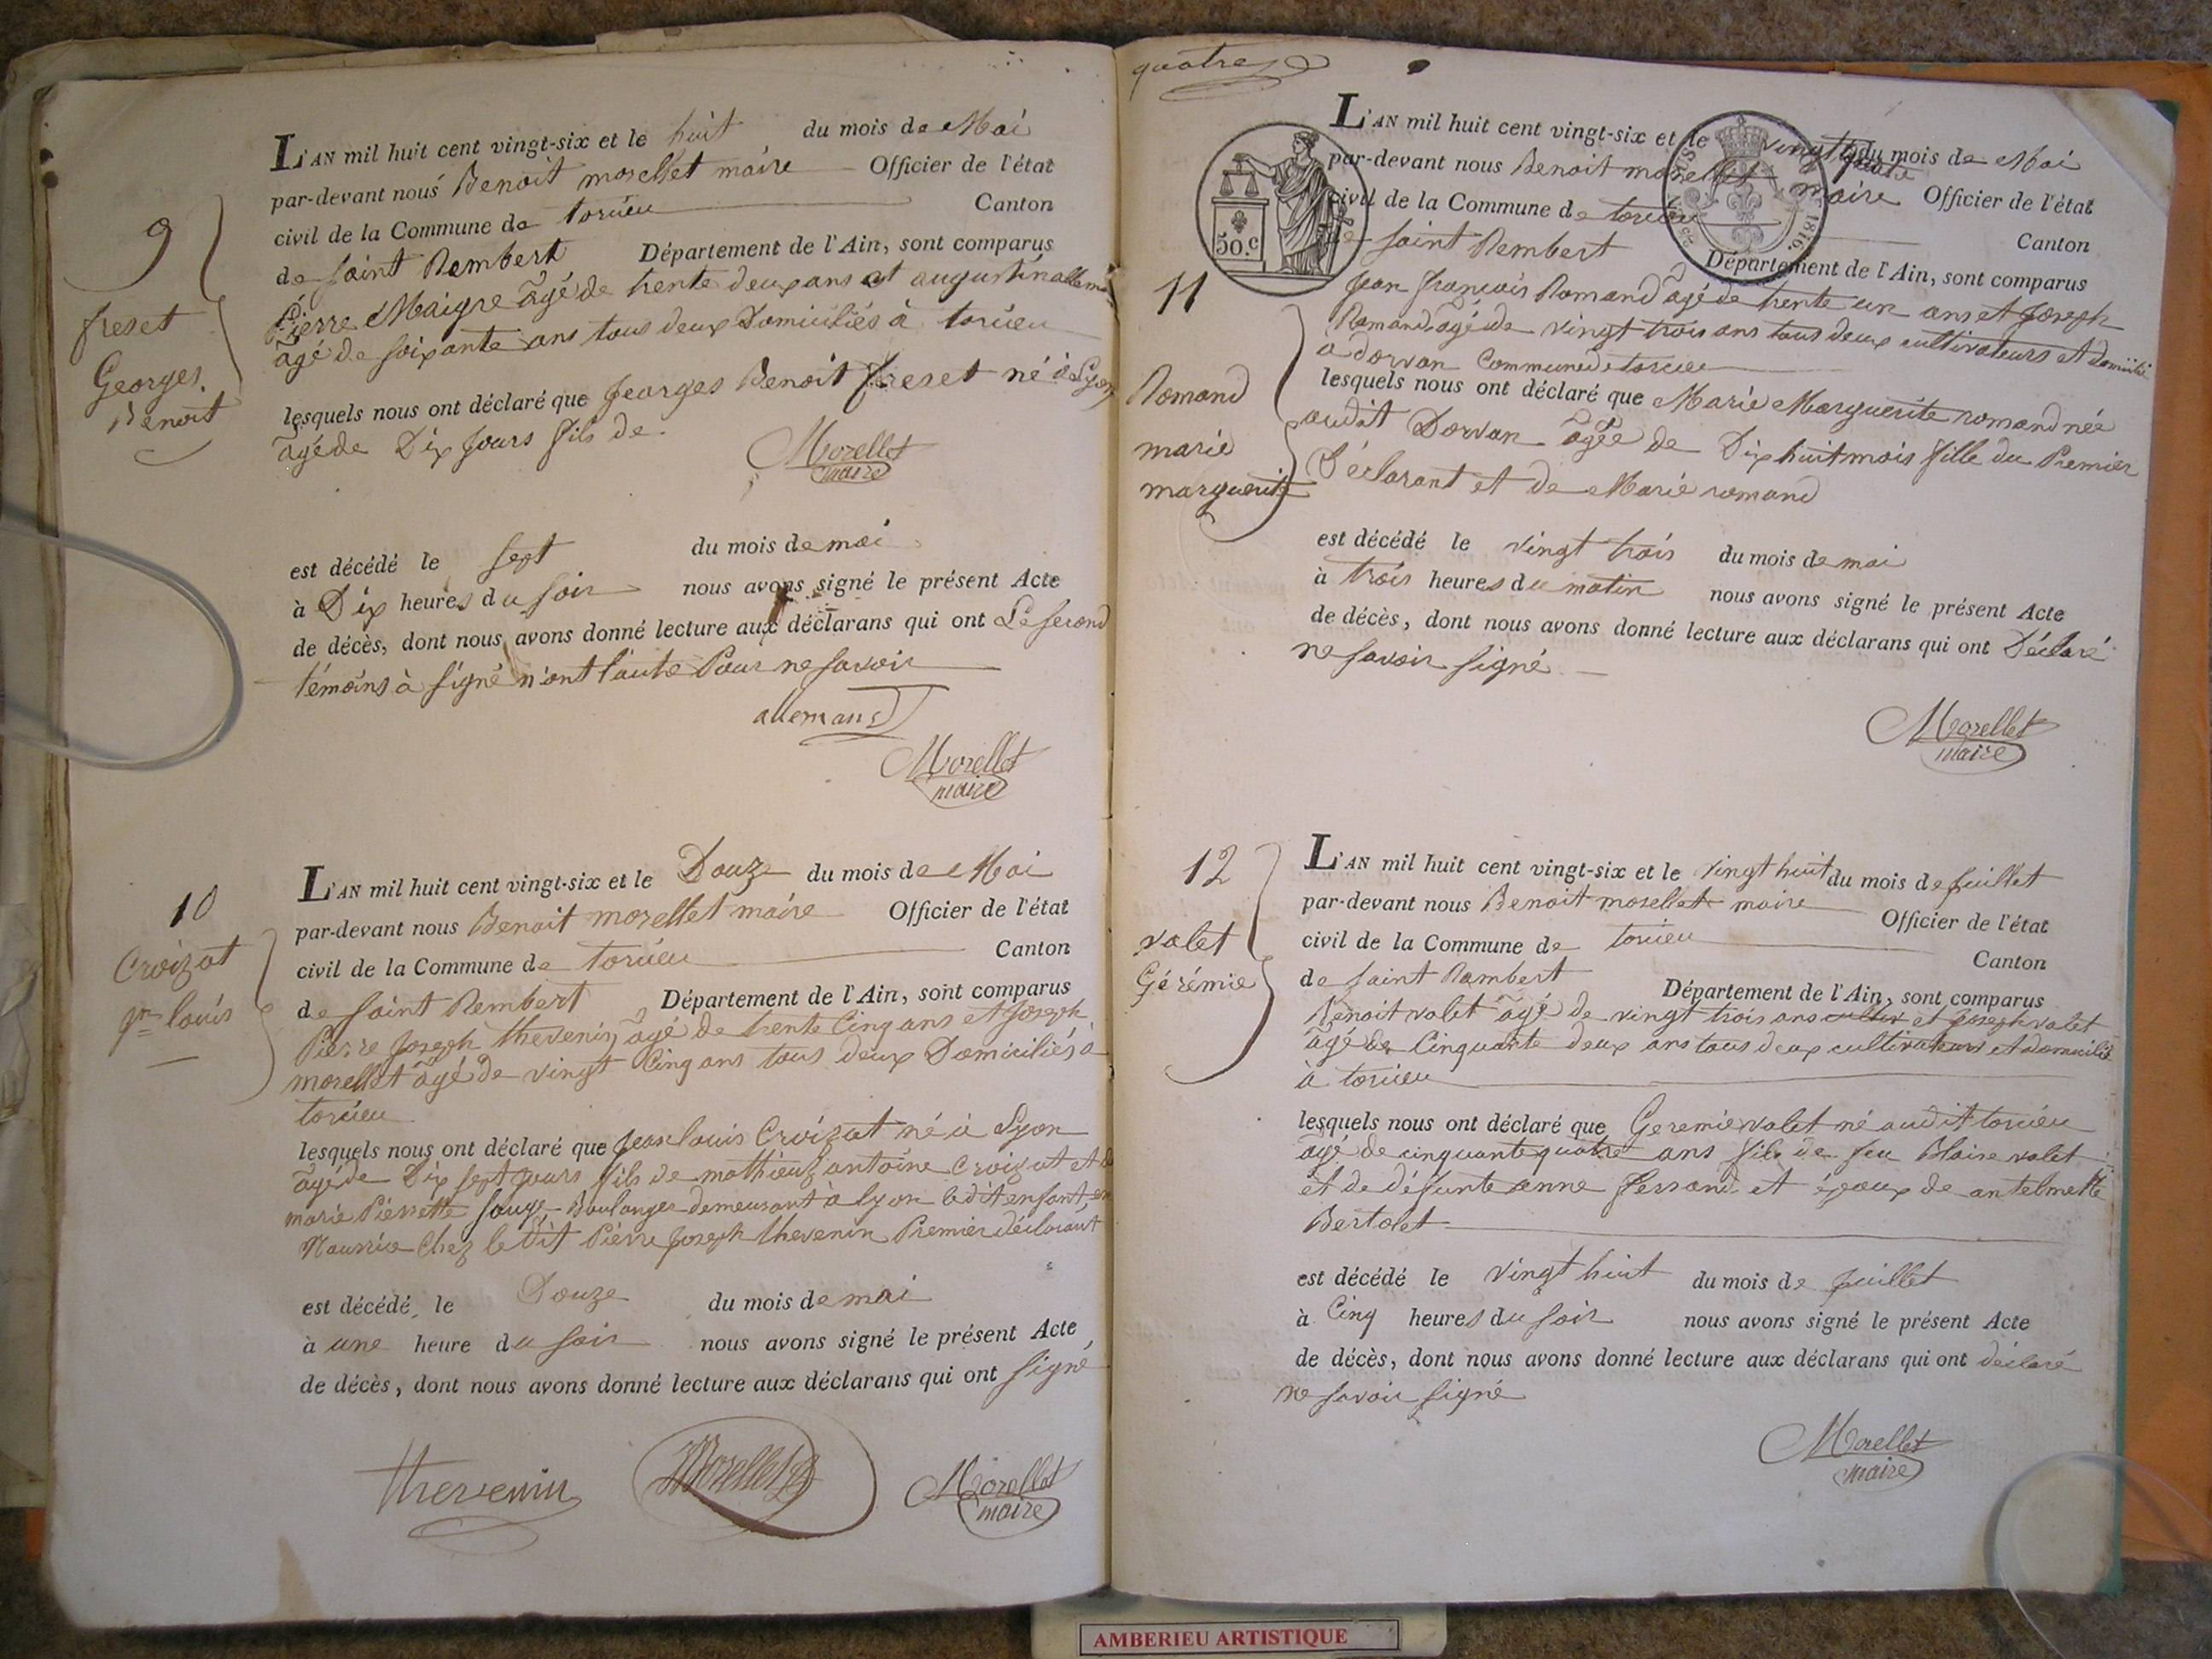 9
freset
Georges
Benoit
L'AN mil huit cent vingt-six et le huit du mois de Mai
par-devant nous Benoit morellet maire Officier de l'état
civil de la Commune de torcieu Canton
de saint Rembert Département de l'Ain, sont comparus
Pierre Maigre âgé de trente deux ans et augustin allemand
âgé de soixante ans tous deux Domiciliés à torcieu
lesquels nous ont déclaré que Jeorges Benoit freset né à Lyon
âgé de Dix jours fils de
Morellet
maire
est décédé le sept du mois de mai
à Dix heures du soir nous avons signé le présent Acte
de décès, dont nous avons donné lecture aux déclarans qui ont Le second
témoins à signé n'ont l'autre Pour ne savoir
allemand
Morellet
maire
10
Croizat
jn louis
L'AN mil huit cent vingt-six et le Douze du mois de Mai
par-devant nous Benoit morellet maire Officier de l'état
civil de la Commune de torcieu Canton
de saint Rembert Département de l'Ain, sont comparus
Pierre Joseph thevenin âgé de trente Cinq ans et Joseph
morellet âgé de vingt Cinq ans tous deux Domiciliés à
torcieu
lesquels nous ont déclaré que jean louis Croizat né à Lyon
âgé de Dix sept jours fils de mathieu antoine Croizat et de
marie Pierrette Boulanger demeurant à lyon ledit enfant en
Nourrice Chez le dit Pierre joseph thevenin Premier déclarant
est décédé le Douze du mois de mai
à une heure du soir nous avons signé le présent Acte
de décès, dont nous avons donné lecture aux déclarans qui ont signé
thevenin
Morellet
Morellet
maire
quatre
50.c
1816.
11
Romand
marie
marguerite
L'AN mil huit cent vingt-six et le vingt trois du mois de Mai
par-devant nous Benoit morellet maire Officier de l'état
civil de la Commune de torcieu Canton
de saint Rembert Département de l'Ain, sont comparus
Jean françois Romand âgé de trente un ans et Joseph
Romand âgé de vingt trois ans tous deux cultivateurs et domicilié
a dorvan Commune de torcieu
lesquels nous ont déclaré que Marie Marguerite romand née
audit Dorvan âgée de Dix huit mois fille du Premier
Déclarant et de Marie romand
est décédé le vingt trois du mois de mai
à trois heures du matin nous avons signé le présent Acte
de décès, dont nous avons donné lecture aux déclarans qui ont Déclaré
ne savoir signé
Morellet
maire
12
valet
Gérémie
L'AN mil huit cent vingt-six et le vingt huit du mois de juillet
par-devant nous Benoit morellet maire Officier de l'état
civil de la Commune de torcieu Canton
de saint Rambert Département de l'Ain, sont comparus
Benoit valet âgé de vingt trois ans cultiv et Joseph valet
âgé de Cinquante deux ans tous deux cultivateurs et domicilié
à torcieu
lesquels nous ont déclaré que Geremie valet né audit torcieu
âgé de cinquante quatre ans fils de feu Blaise valet
et de défunte anne ferrand et époux de antelmette
Bertolet
est décédé le vingt huit du mois de juillet
à Cinq heures du soir nous avons signé le présent Acte
de décès, dont nous avons donné lecture aux déclarans qui ont déclaré
ne savoir signé
Morellet
maire
AMBERIEU ARTISTIQUE